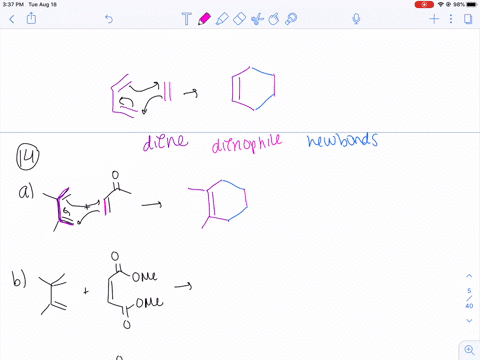 3:37 PM Tue Aug 18
98%
T
diene dienophile new bonds
14
a)
O
+
b)
+
O
OMe
OMe
O
5
/
40